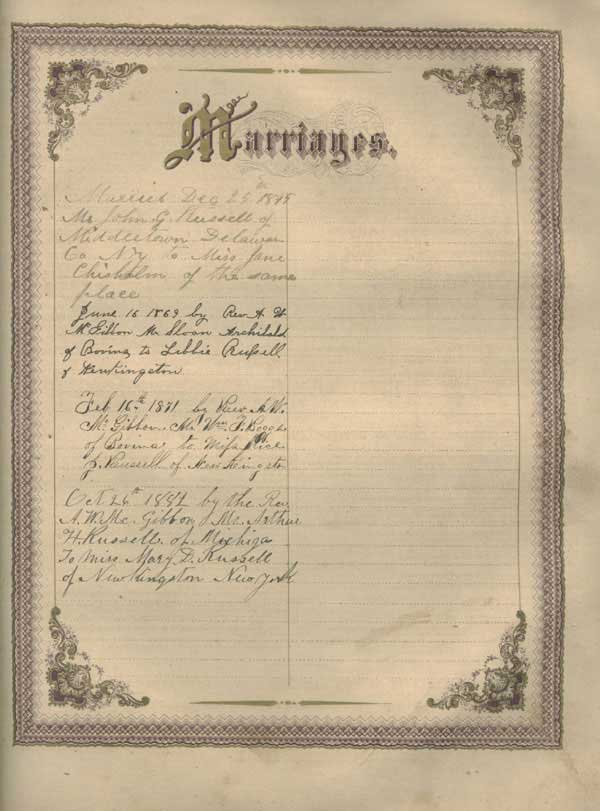 Marriages.
Married Dec 25th
Mr John G. Russell of
Middletown Delawar
Co N.Y. to Miss Jane
Chisholm of the same
place
June 16 1869 by Rev. A W
McGibbon Mr Sloan Archibald
of Bovina to Libbie Russell
of Newkingston
Feb 16th 1871 by Rev. A. W.
Mc Gibbon Mr Wm
of Bovina to Miss Alice
J. Russell of New Kingston
Oct 26th 1882 by the Rev
A. W. Mc. Gibbon Mr. Arthur
H. Russell of Michiga
To Miss Mary D. Russell
of New Kingston New York